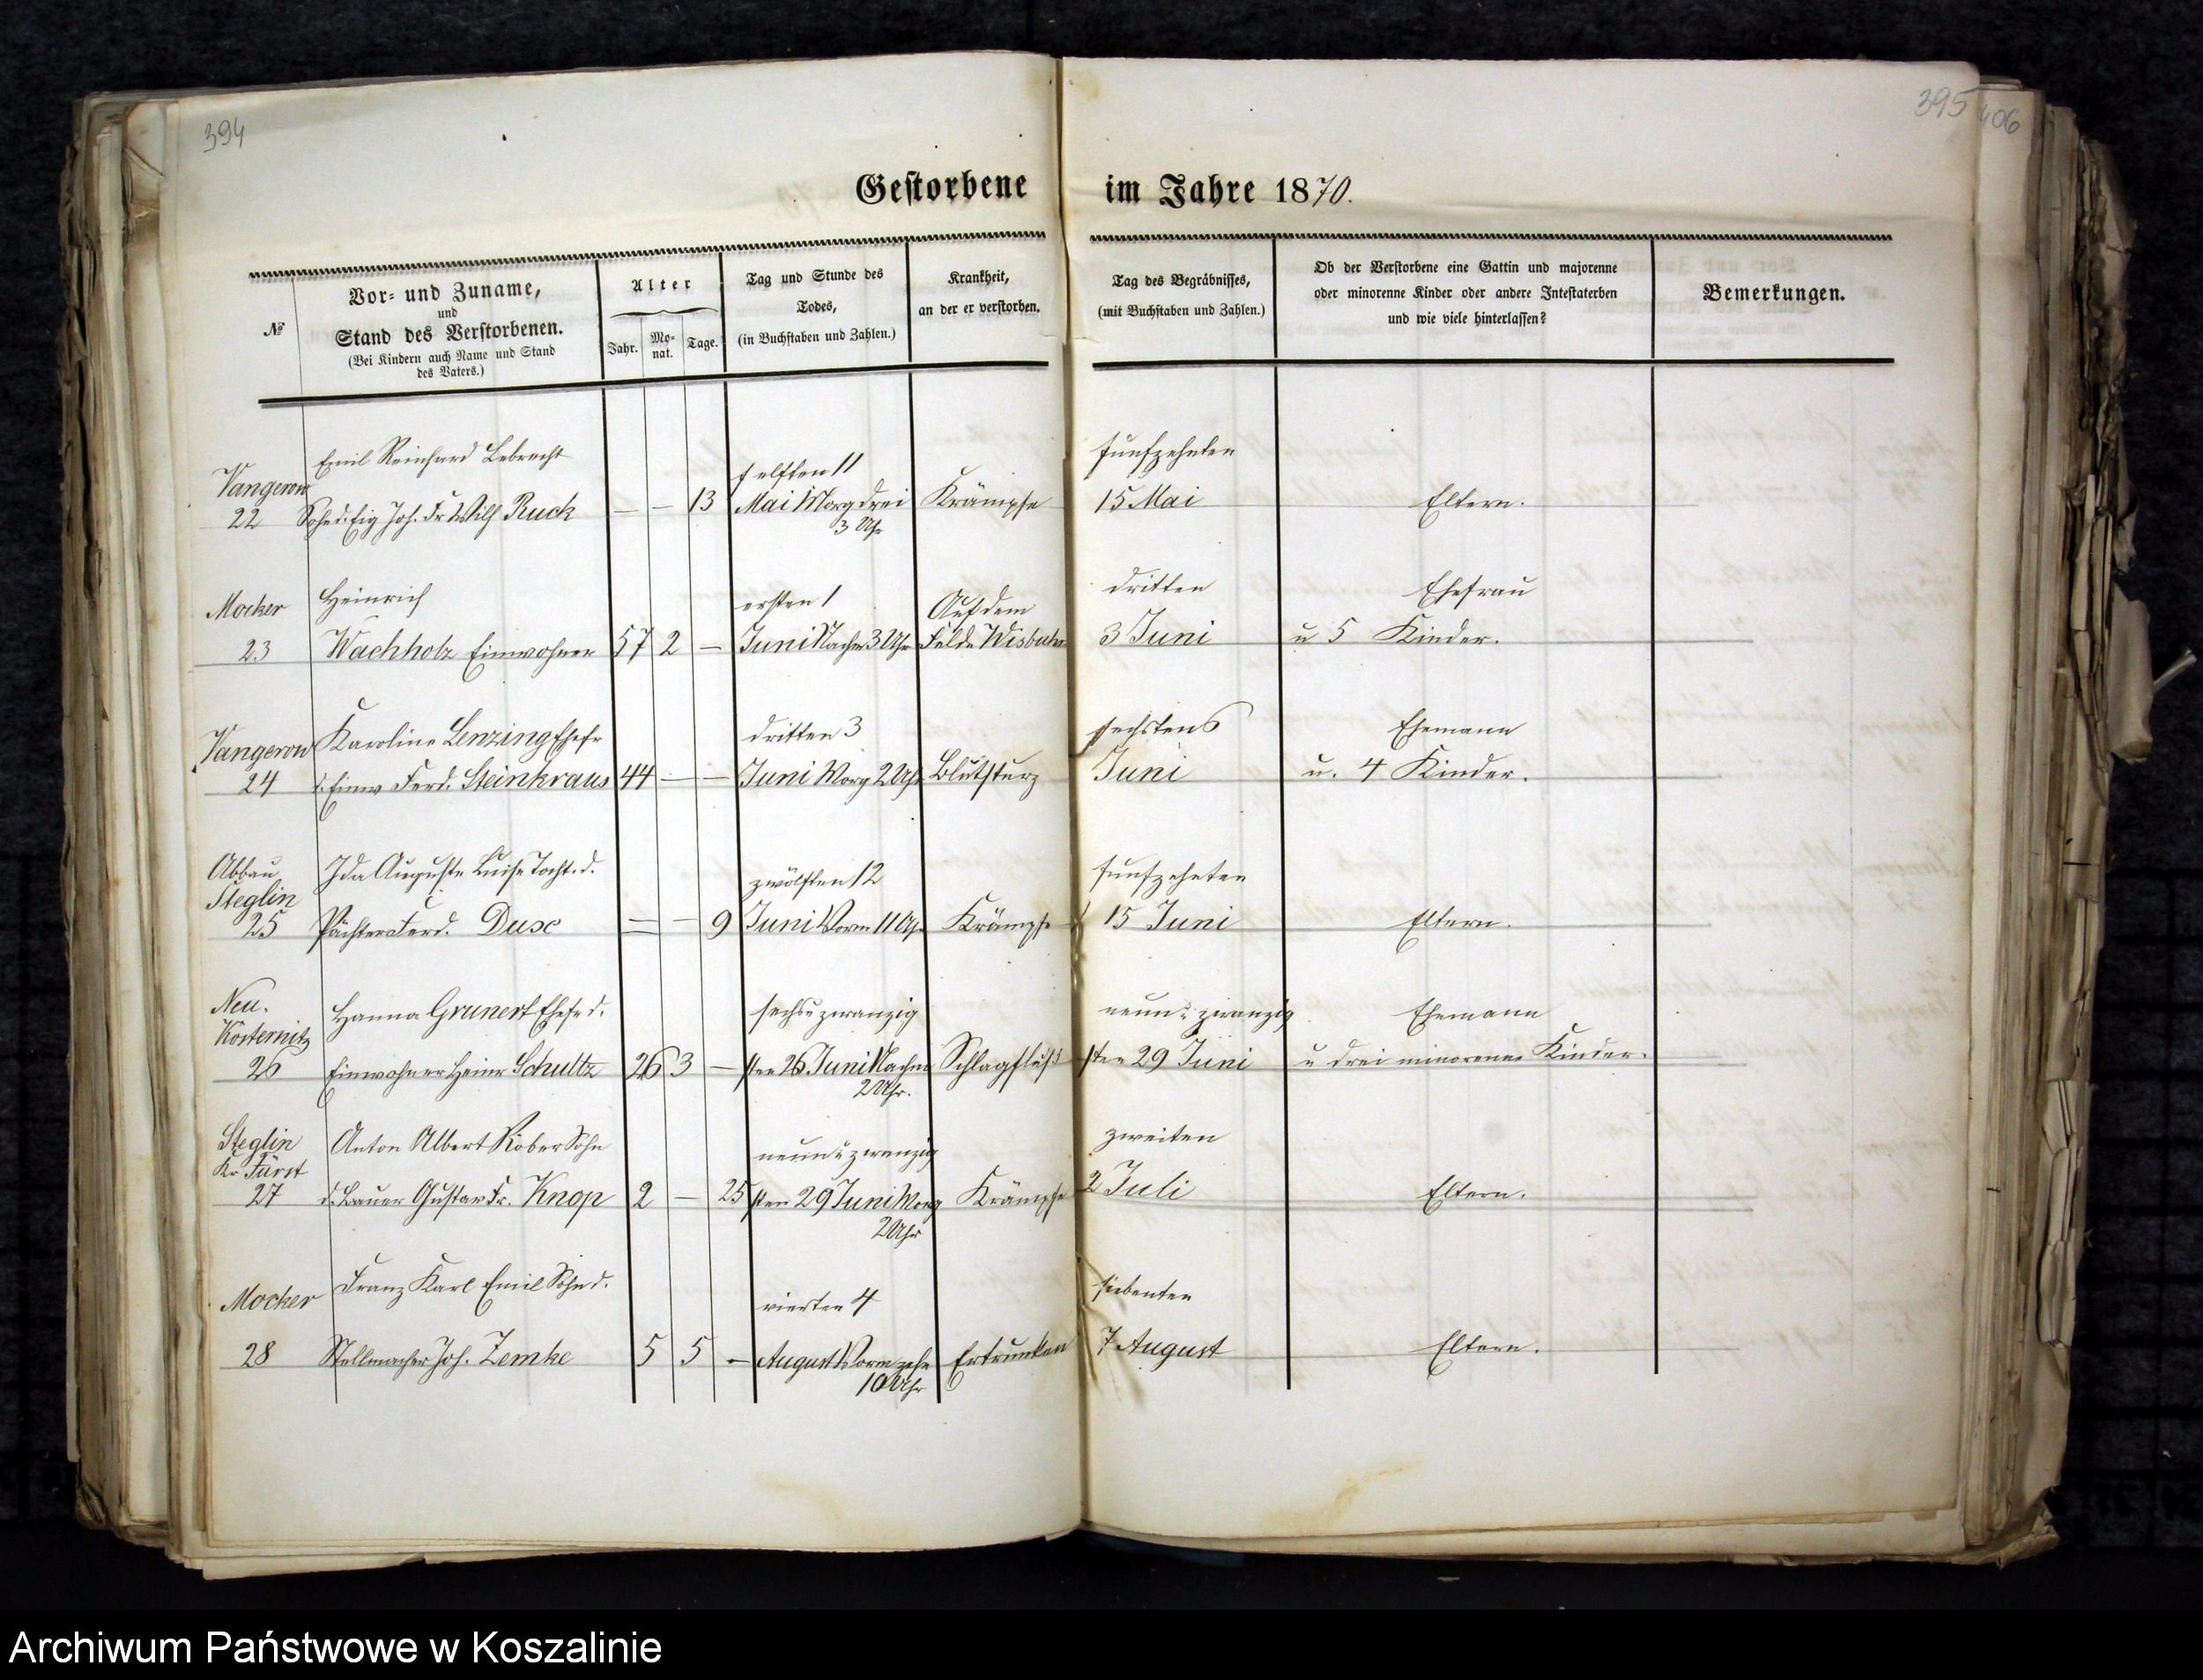 394
395
406
Gestorbene im Jahre 1870.
№
Vor- und Zuname,
und
Stand des Verstorbenen.
(Bei Kindern auch Name und Stand
des Vaters.)
Alter
Jahr.
Mo-
nat.
Tage.
Tag und Stunde des
Todes,
(in Buchstaben und Zahlen.)
Krankheit,
an der er verstorben.
Tag des Begräbnisses,
(mit Buchstaben und Zahlen.)
Ob der Verstorbene eine Gattin und majorenne
oder minorenne Kinder oder andere Intestaterben
und wie viele hinterlassen?
Bemerkungen.
Vangerow
22
Emil Reinhard Lebrecht
Sohn d. Eig Joh. Fr Wilh Ruck
— — 13
elften 11
Mai Morg drei
3 Uhr
Krämpfe
fünfzehnten
15 Mai
Eltern.
Mocker
23
Heinrich
Wachholz Einwohner
57 2 —
ersten 1
Juni Nachm 3 Uhr
Auf dem
Felde Wisbuhr
dritten
3 Juni
Ehefrau
u 5 Kinder.
Vangerow
24
Karoline Lenzing Ehefr
d. Einw Ferd. Steinkraus
44 — —
dritten 3
Juni Morg 2 Uhr
Blutsturz
sechsten 6
Juni
Ehemann
u. 4 Kinder.
Abbau
Steglin
25
Ida Auguste Luise Tocht. d.
Pächter Ferd. Duse
— — 9
zwölften 12
Juni Vorm 11 Uhr
Krämpfe
fünfzehnten
15 Juni
Eltern.
Neu.
Kösternitz
26
Hanna Grunert Ehefr d.
Einwohner Heinr Schultz
26 3 —
sechs u zwanzig
sten 26 Juni Nachm
2 Uhr.
Schlagfluß
neun u zwanzig
sten 29 Juni
Ehemann
u drei minorenne Kinder.
Steglin
Kr Fürst
27
Anton Albert Rober Sohn
d. Bauer Gustav Fr. Knop
2 — 25
neun u zwanzig
sten 29 Juni Morg
2 Uhr
Krämpfe
zweiten
2 Juli
Eltern.
Mocker
28
Franz Karl Emil Sohn d.
Stellmacher Joh. Zemke
5 5 —
vierten 4
August Vorm zehn
10 Uhr
Ertrunken
siebenten
7 August
Eltern.
Archiwum Państwowe w Koszalinie